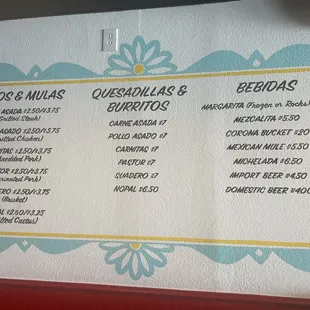 OS & MULAS
ASADA $2.50/$3.75
(Grilled Steak)
ASADO $2.50/$3.75
(Grilled Chicken)
$2.50/$3.75
Pork)
$2.50/$3.75
Pork)
$2.50/$3.75
(Brisket)
$2.50/$3.25
Cactus)
QUESADILLAS &
BURRITOS
CARNE ASADA $7
POLLO ASADO $7
CARNITAS $7
PASTOR $7
SUADERO $7
NOPAL $6.50
BEBIDAS
MARGARITA (Frozen or Rocks)
MEZCALITA $5.50
CORONA BUCKET $20
MEXICAN MULE $5.50
MICHELADA $6.50
IMPORT BEER $4.50
DOMESTIC BEER $4.00